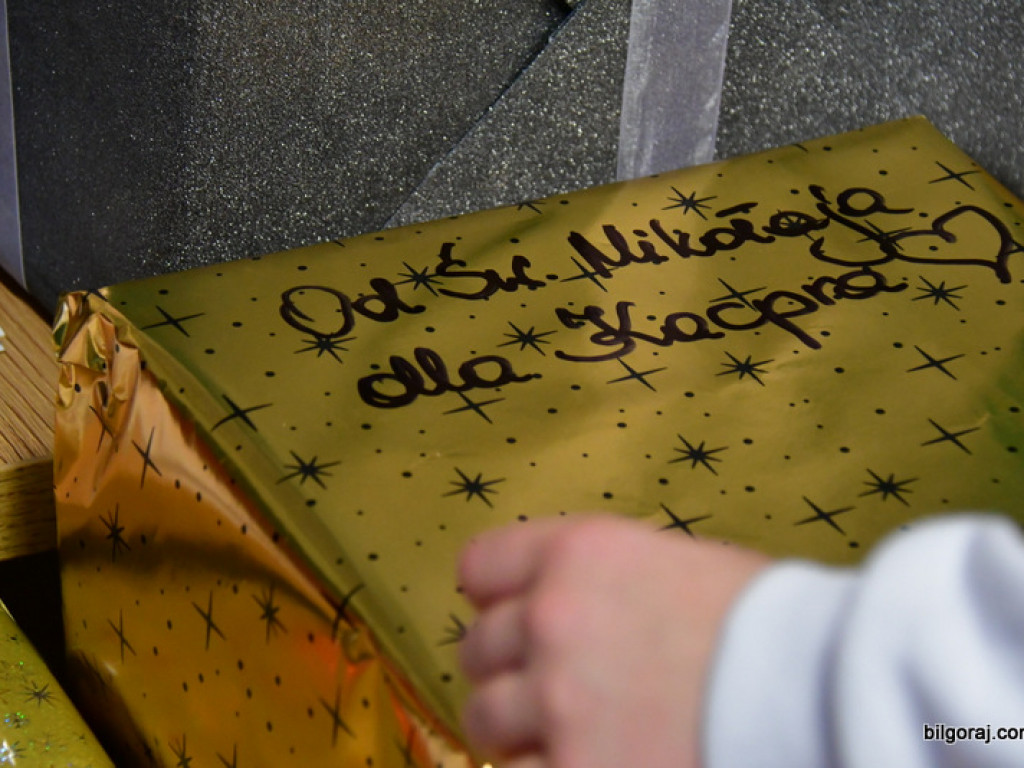 Od Św. Mikołaja
dla Kacpra
bilgoraj.com